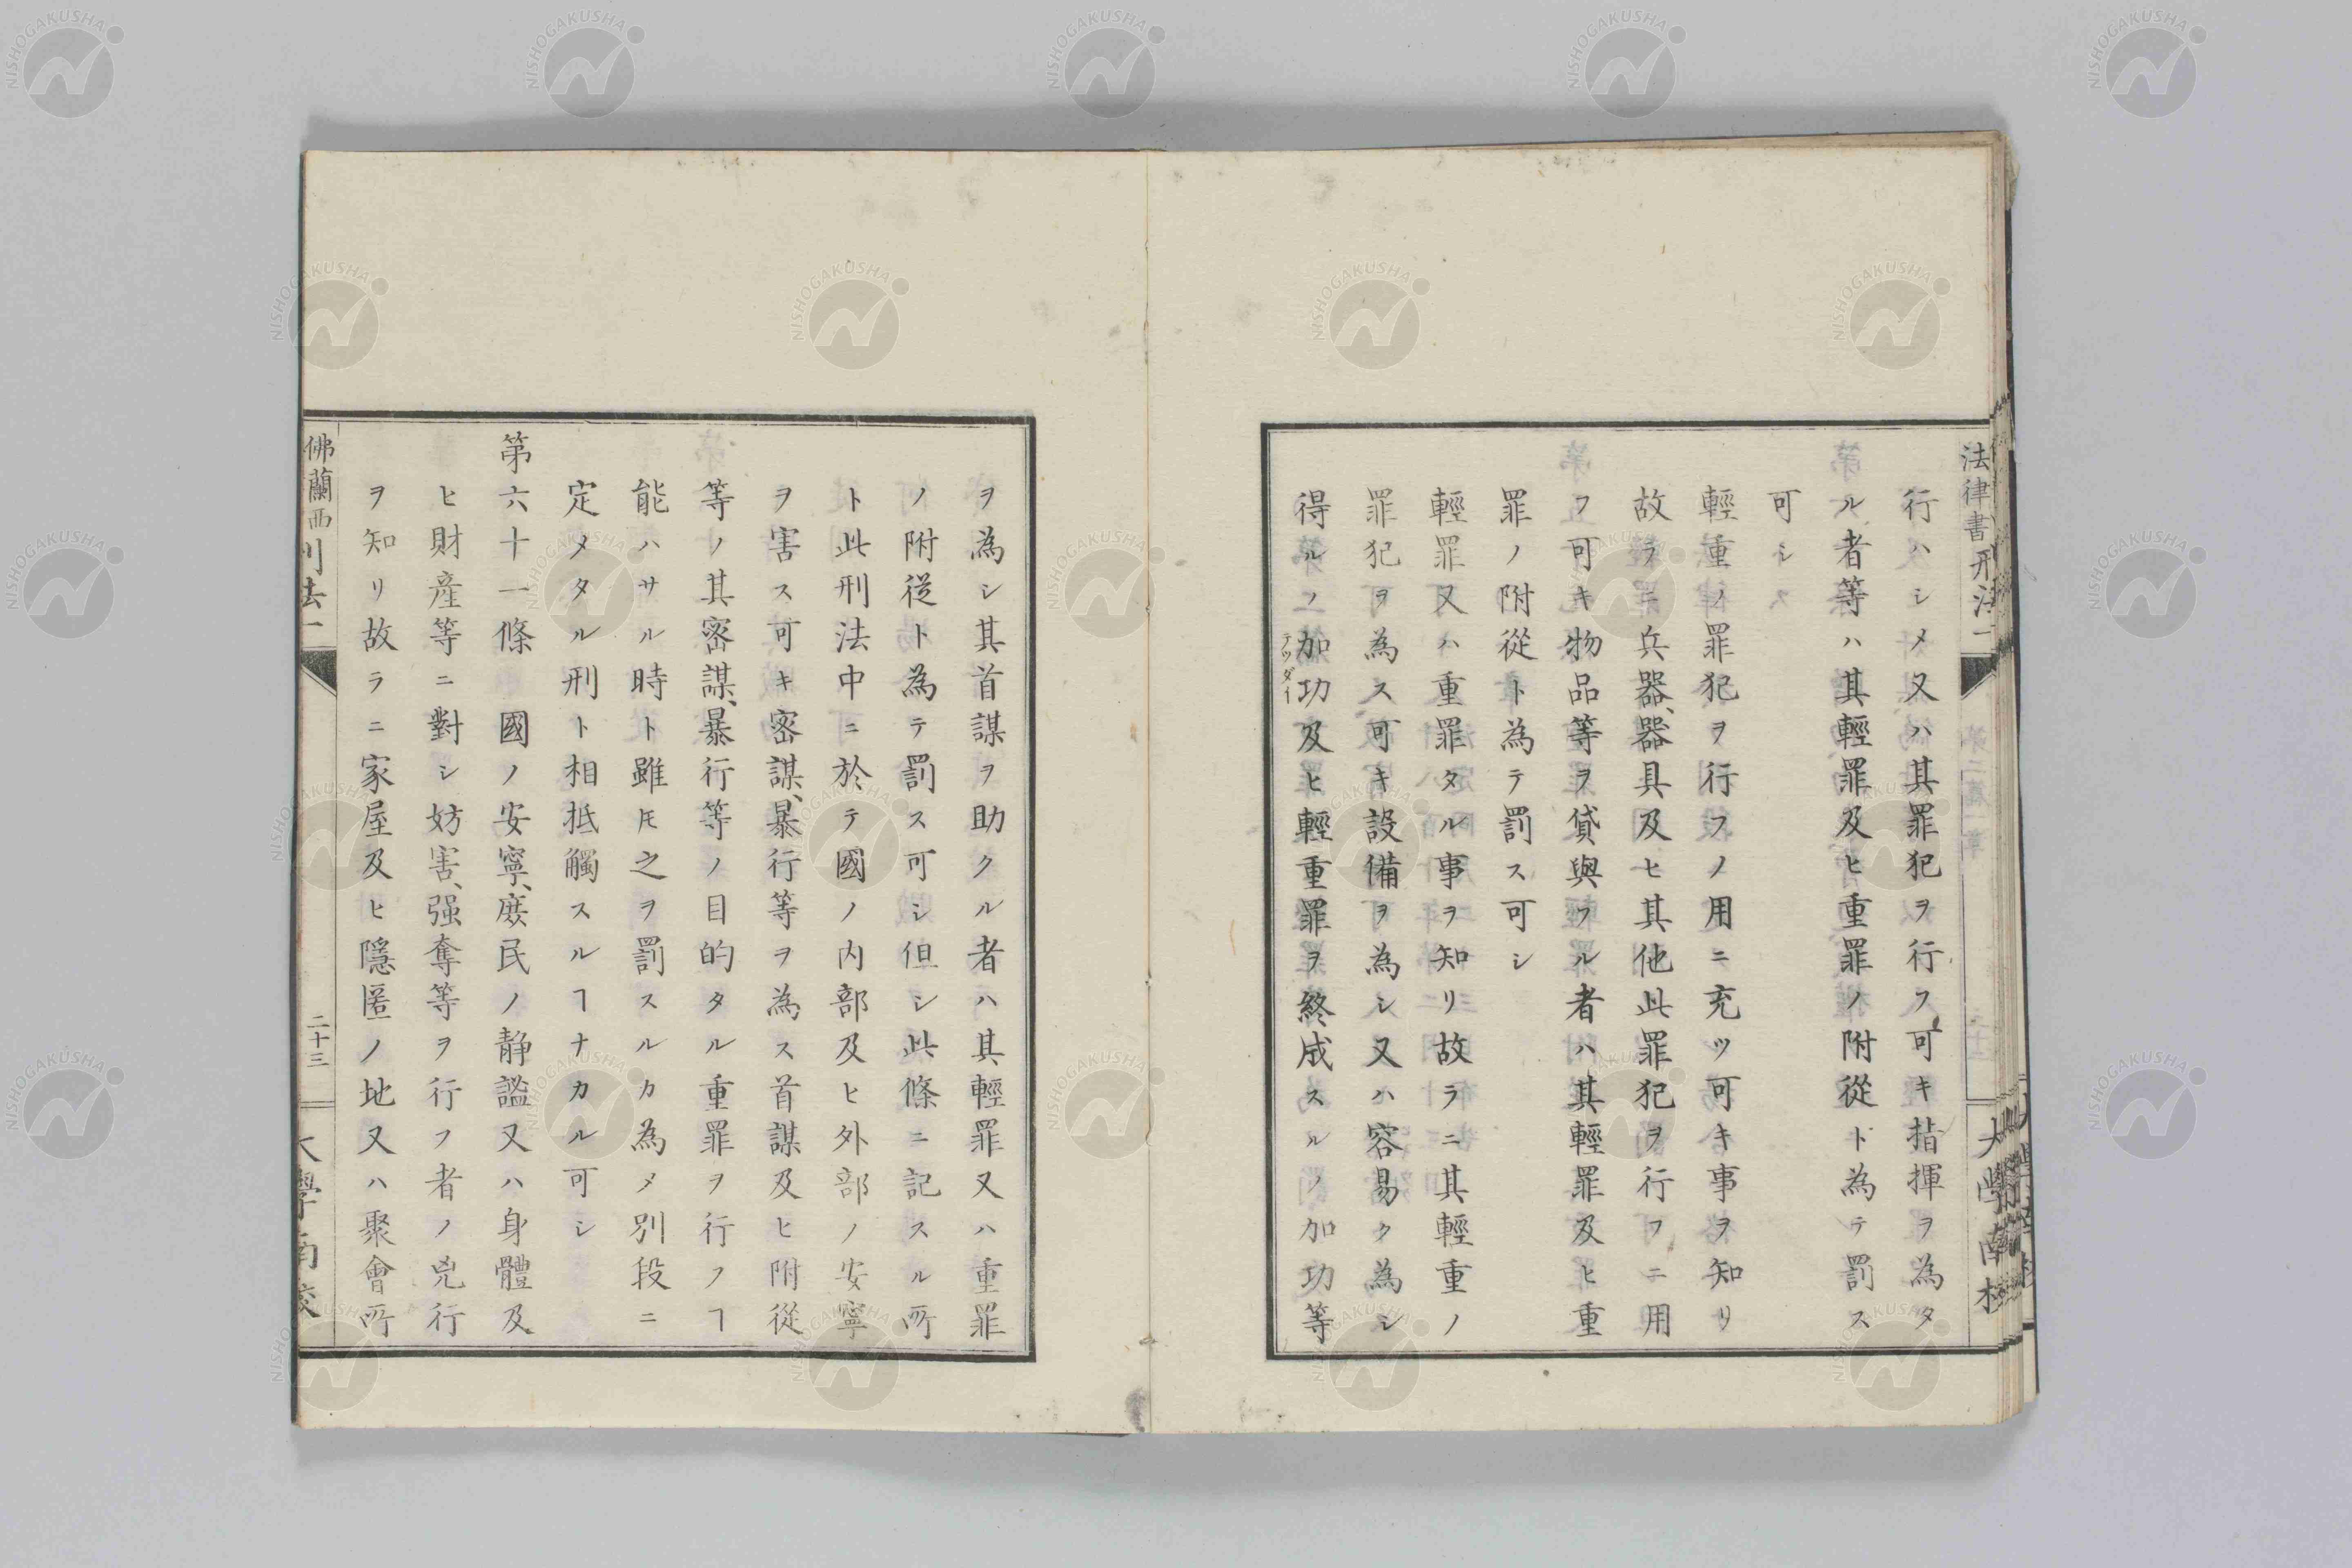 法律書 刑法一
行ハシメ又ハ其罪犯ヲ行フ可キ指揮ヲ為タ
ル者等ハ其輕罪及ヒ重罪ノ附從ト為テ罰ス
可シ
輕重ノ罪犯ヲ行フノ用ニ充ツ可キ事ヲ知リ
故ラニ兵器、器具及ヒ其他此罪犯ヲ行フニ用
フ可キ物品等ヲ貸與フル者ハ其輕罪及ヒ重
罪ノ附從ト為テ罰ス可シ
輕罪又ハ重罪タル事ヲ知リ故ラニ其輕重ノ
罪犯ヲ為ス可キ設備ヲ為シ又ハ容易ク為シ
得ルノ加功及ヒ輕重罪ヲ終成スルノ加功等
テツダー
大學南校
ヲ為シ其首謀ヲ助クル者ハ其輕罪又ハ重罪
ノ附從ト為テ罰ス可シ但シ此條ニ記スル所
ト此刑法中ニ於テ國ノ内部及ヒ外部ノ安寧
ヲ害ス可キ密謀、暴行等ヲ為ス首謀及ヒ附從
等ノ其密謀、暴行等ノ目的タル重罪ヲ行フヿ
能ハサル時ト雖𪜈之ヲ罰スルカ為メ別段ニ
定メタル刑ト相抵觸スルヿナカル可シ
第六十一條 國ノ安寧、庶民ノ静謐又ハ身體及
ヒ財産等ニ對シ妨害、强奪等ヲ行フ者ノ兇行
ヲ知リ故ラニ家屋及ヒ隱匿ノ地又ハ聚會所
佛蘭西刑法一
二十三
大學南校
NISHOGAKUSHA